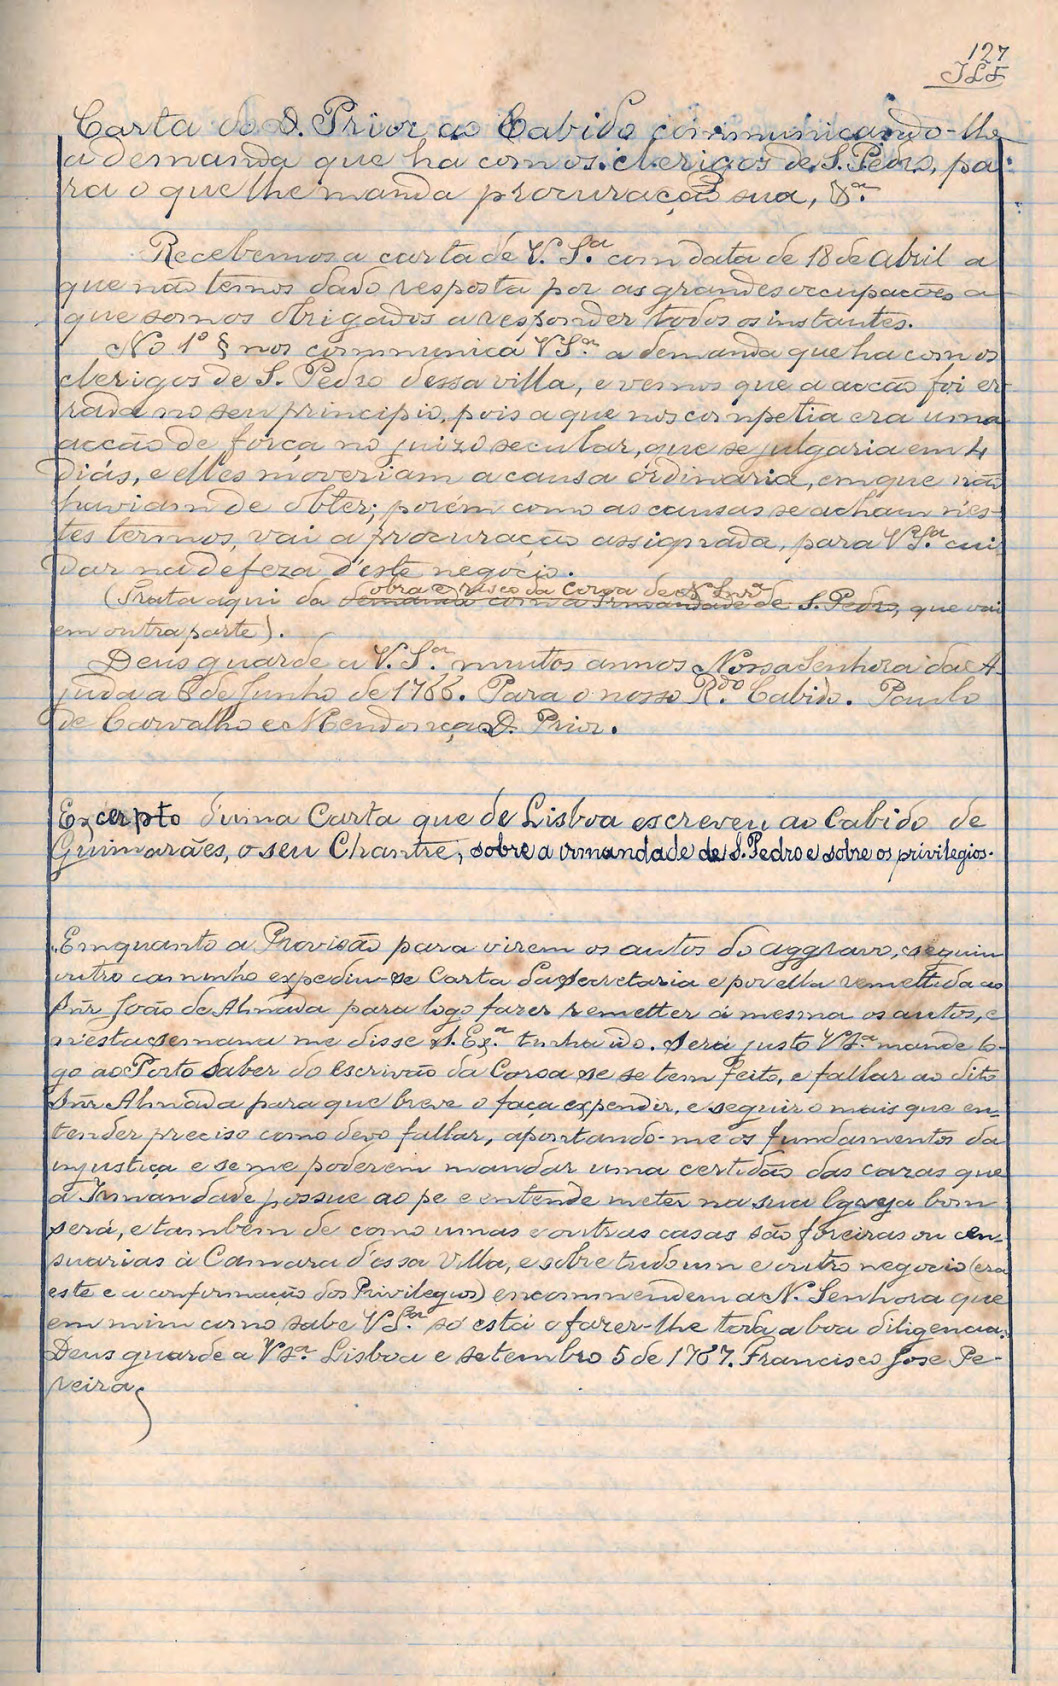 127
JLF
Carta do D. Prior ao Cabido communicando-lhe
a demanda que ha com os clerigos de S. Pedro, pa-
ra o que lhe manda procuração sua, &ª.
Recebemos a carta de V. Sª. com data de 18 de abril a
que não temos dado resposta por as grandes occupações a
que somos obrigados a responder todos os instantes.
No 1º § nos communica V Sª. a demanda que ha com os
clerigos de S. Pedro dessa villa, e vemos que a acção foi er-
rada no seu principio, pois a que nos competia era uma
acção de força no juizo secular, que se julgaria em 4
dias, e elles moveriam a causa ordinaria, em que não
haviam de obter; porém como as causas se acham n'es-
tes termos, vai a procuração assignada, para V Sª. cui-
dar na defeza d'este negocio.
(Trata aqui da obra e risco da Coroa de N. Snrª
demanda com a Irmandade de S. Pedro, que vai
em outra parte).
Deus guarde a V. Sª. muitos annos Nossa Senhora da A-
juda a 8 de Junho de 1766. Para o nosso R.do Cabido. Paulo
de Carvalho e Mendonça D. Prior.
Excerpto d'uma Carta que de Lisboa escreveu ao Cabido de
Guimarães, o seu Chantre, sobre a irmandade de S. Pedro e sobre os privilegios.
Emquanto a Provisão para virem os autos do aggravo, seguiu
outro caminho expediu-se Carta da Secretaria e por ella remettida ao
Snr João de Almada para logo fazer remetter á mesma os autos, e
n'esta semana me disse S. Exª. tinha ido. Será justo V Sª. mande lo-
go ao Porto saber do escrivão da Coroa se se tem feito, e fallar ao dito
Snr Almada para que breve o faça expendir, e seguir o mais que en-
tender preciso como devo fallar, apontando-me os fundamentos da
injustiça e se me poderem mandar uma certidão das cazas que
a Irmandade possue ao pe e entende meter na sua Igreja bom
será, e tambem de como umas e outras casas são foreiras ou cen-
suarias á Camara d'essa Villa, e sobre tudo um e outro negocio (era
este e a confirmação dos Privilegios) encommendem a N. Senhora que
em mim como sabe V Sª. só está o fazer-lhe toda a boa diligencia.
Deus guarde a V Sª. Lisboa e setembro 5 de 1767. Francisco Jose Pe-
reira